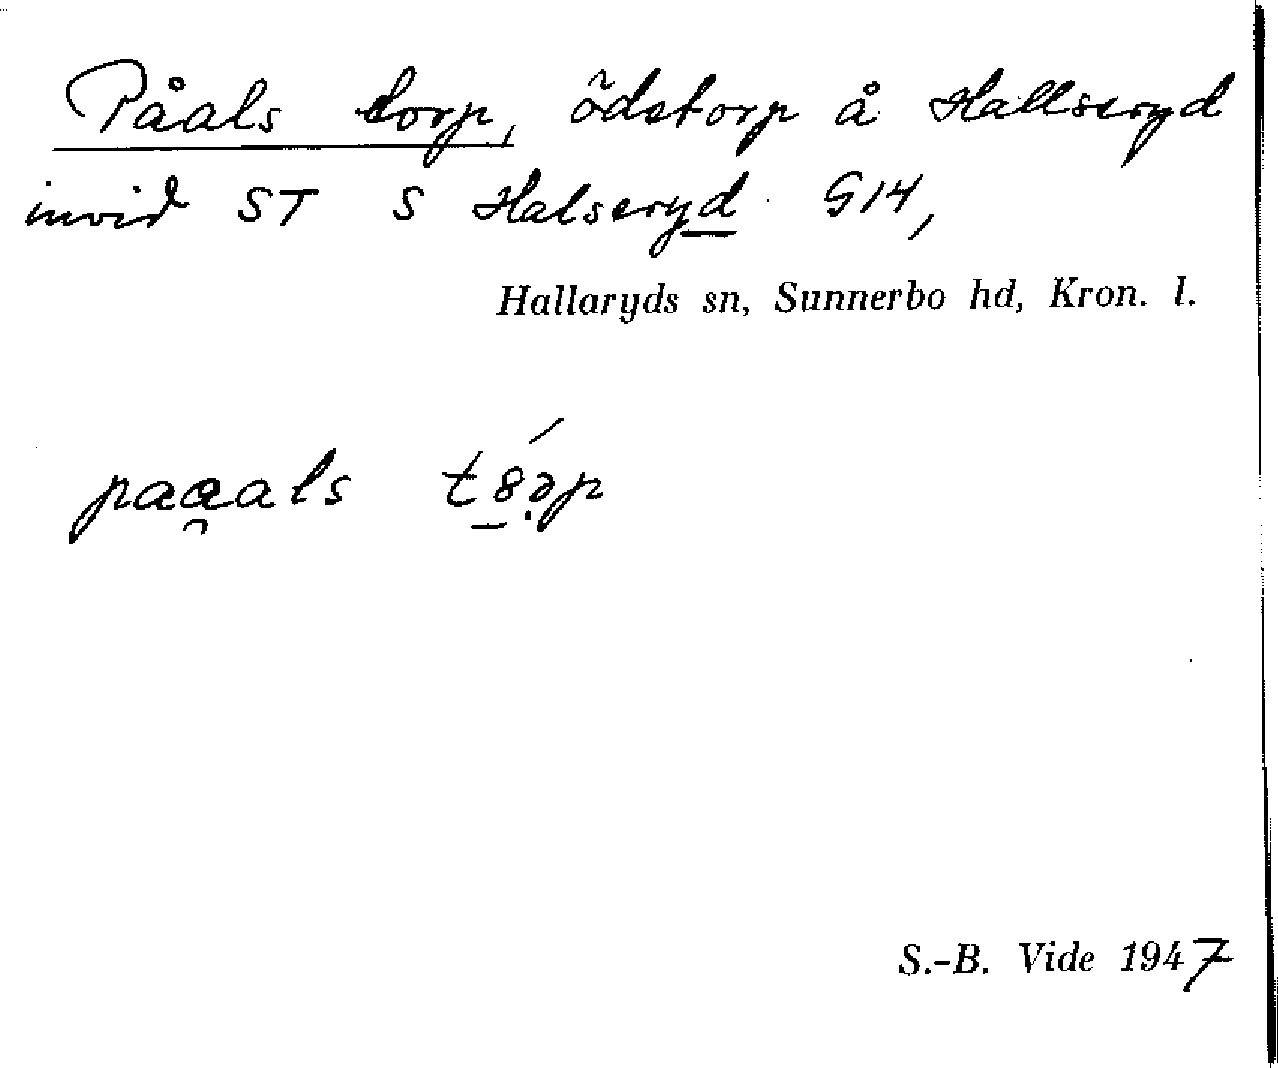 Påals torp, ödetorp å Hallseryd
invid ST S Halseryd G14,
Hallaryds sn, Sunnerbo hd, Kron. l.
paa̯als
S.-B. Vide 1947